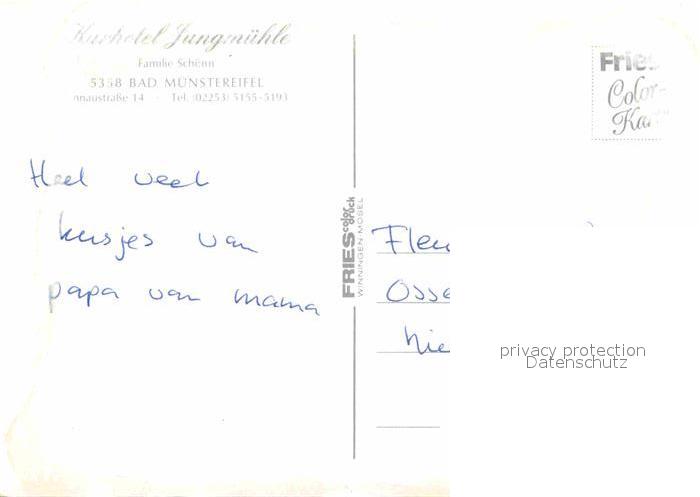 Kurhotel Jungmühle
Familie Schönn
5358 BAD MÜNSTEREIFEL
nnaustraße 14 · Tel. (02253) 5155-5193
Heel veel
kusjes van
papa van mama
FRIES color druck
WINNINGEN-MOSEL
Fries
Color-
Kar
Fleu
Osse
Nie
privacy protection
Datenschutz